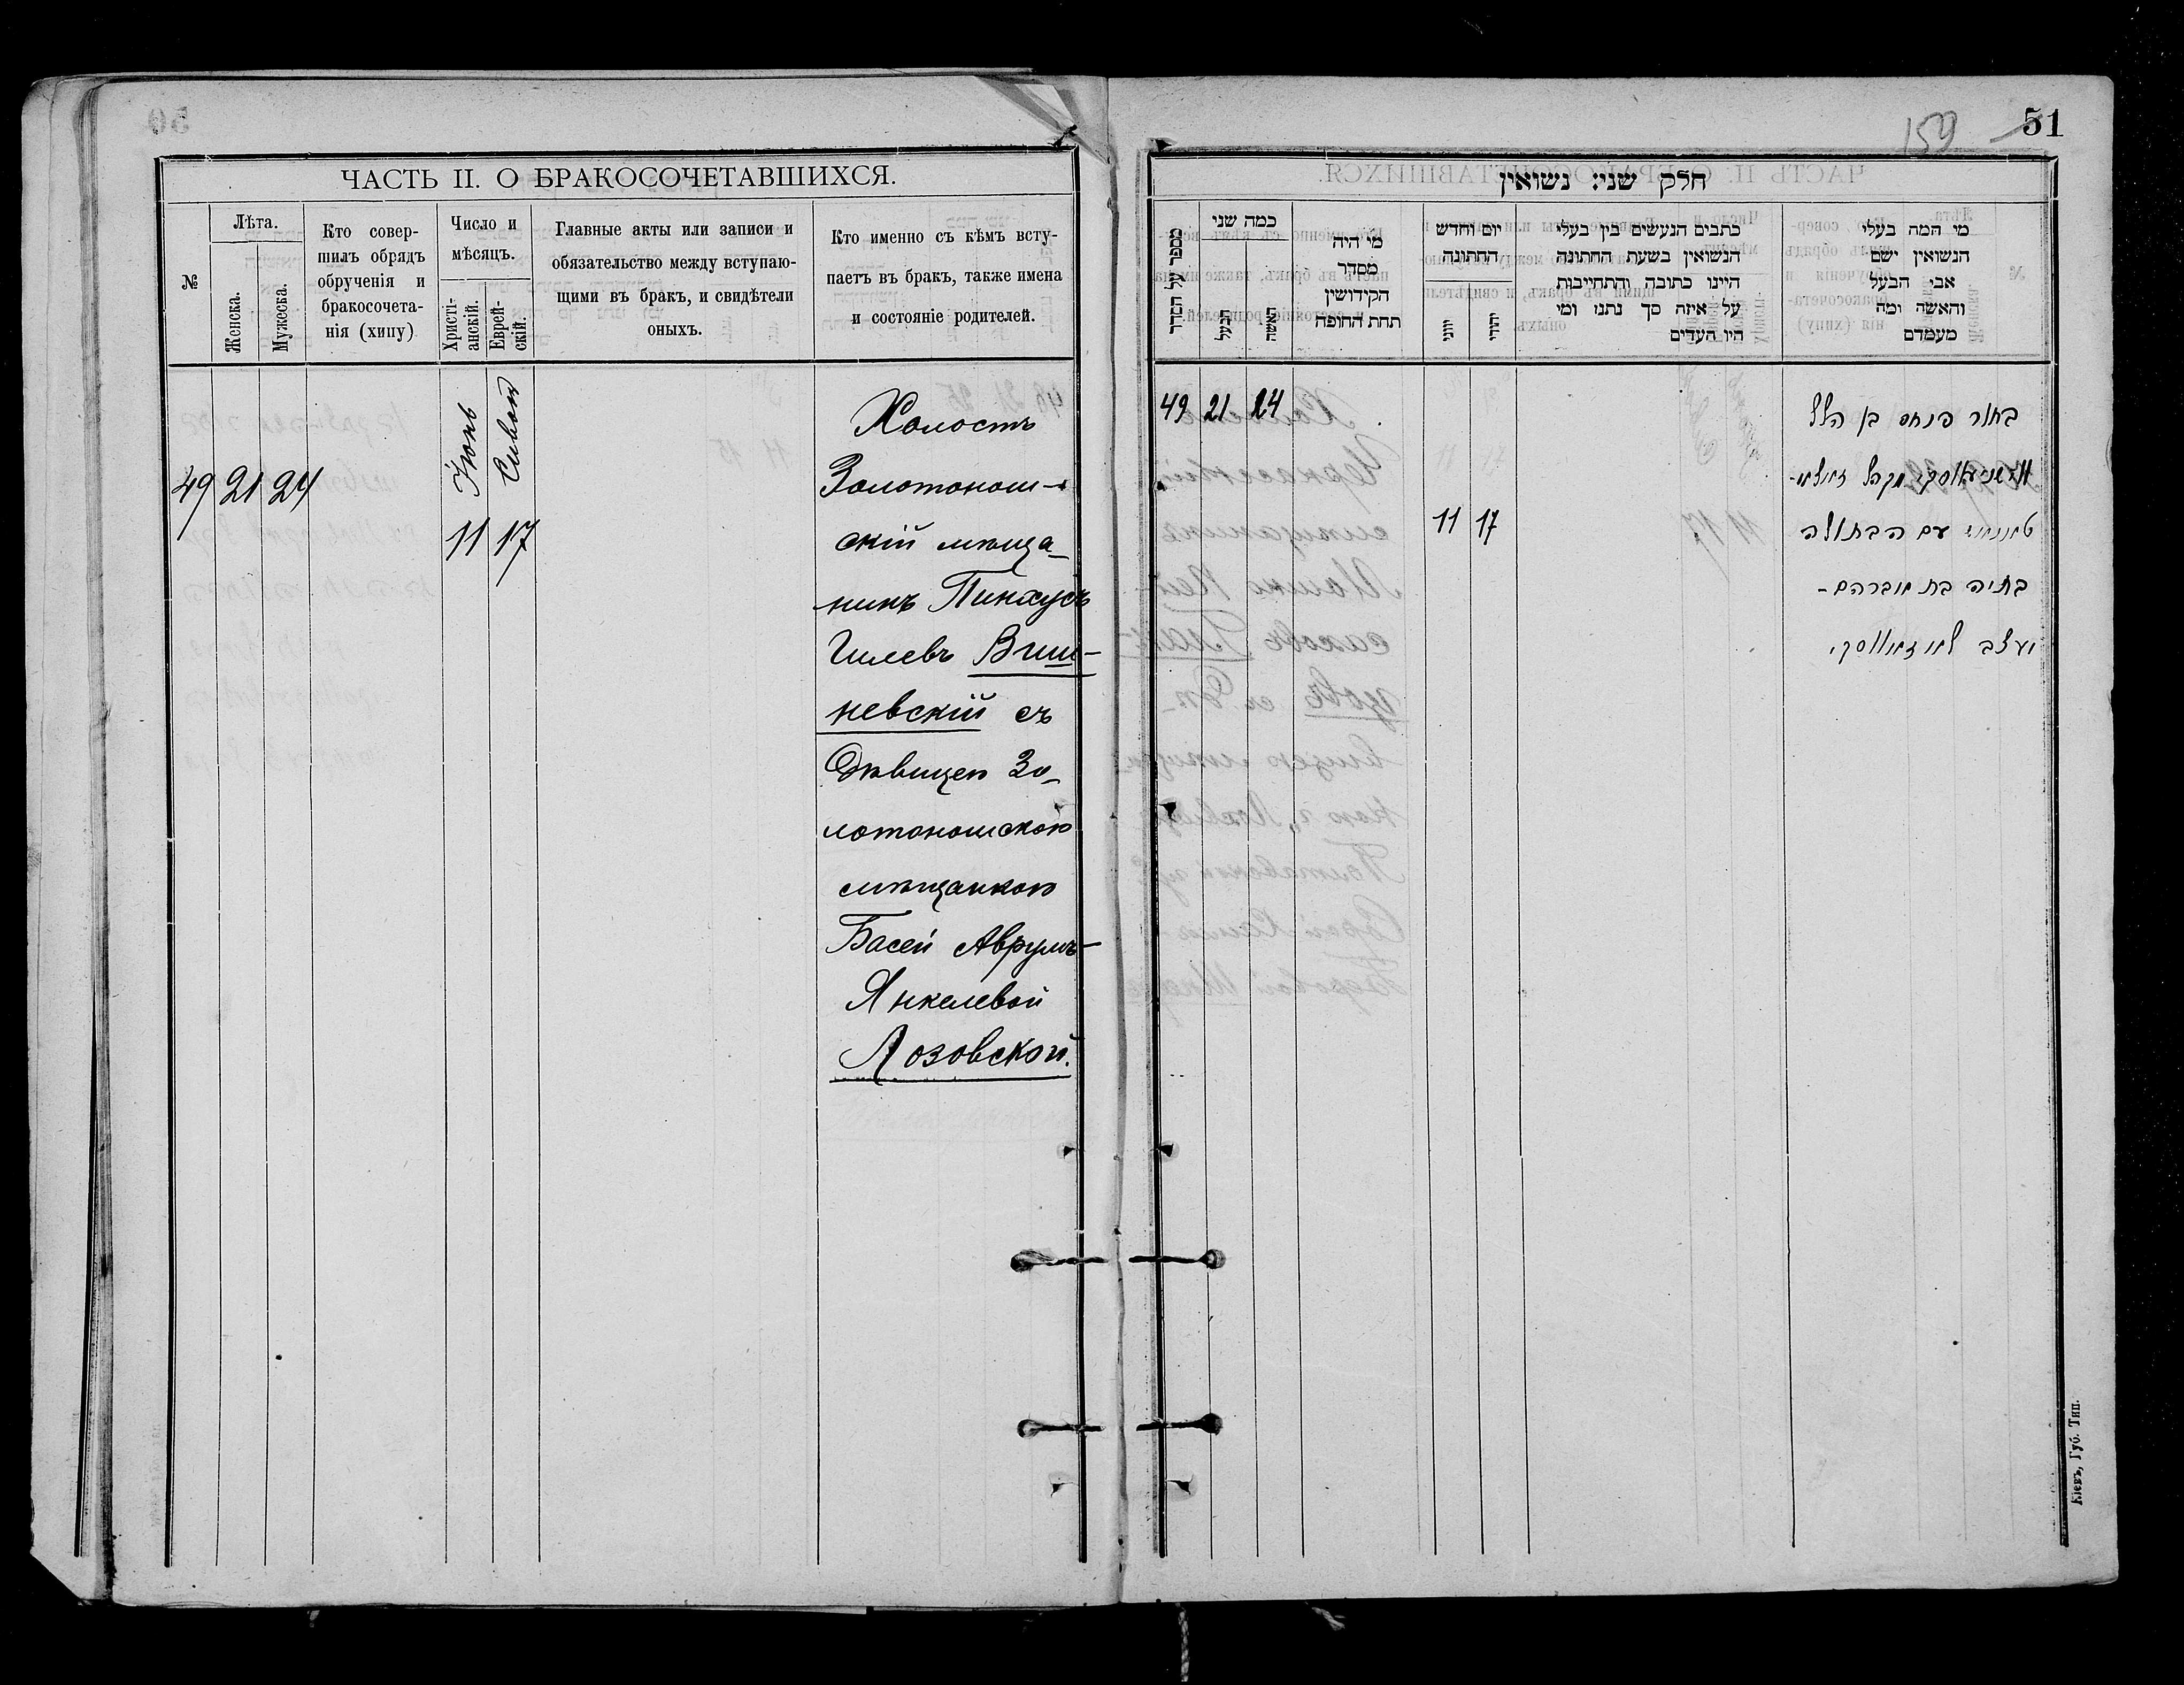 51
159
ЧАСТЬ II. О БРАКОСОЧЕТАВШИХСЯ.
№
Лѣта.
Женска.
Мужеска.
Кто совер-
шилъ обрядъ
обрученія и
бракосочета-
нія (хипу)
Число и
мѣсяцъ.
Христі-
анскій.
Еврей-
скій.
Главные акты или записи и
обязательство между вступаю-
щими въ бракъ, и свидѣтели
оныхъ.
Кто именно съ кѣмъ всту-
паетъ въ бракъ, также имена
и состояніе родителей.
49 21 24
Іюнь
11
Сивонъ
17
Холостъ
Золотонош-
скій мѣща-
нинъ Пинхусъ
Гилевъ Виш-
невскій съ
Дѣвицею Зо-
лотоношскою
мѣщанкою
Басей Аврумъ-
Янкелевой
Лозовской.
חלק שני: נשואין
מספר על הסדר
כמה שני
הבעל
האשה
מי היה
מסדר
הקידושין
תחת החופה
יום וחדש
החתונה
יוני
יהודי
כתבים הנעשים בין בעלי
הנשואין בשעת החתונה
היינו כתובה והתחייבות
על איזה סך נתנו ומי
היו העדים
מי המה בעלי
הנשואין ושם
אבי הבעל
והאשה ומה
מעמדם
49 21 24
11 17
בחור פנחס בן הלל
מקהל זאלא-
עם הבתולה
בתיה בת אברהם-
יעקב לאזאווסקי
Кіевъ, Губ. Тип.